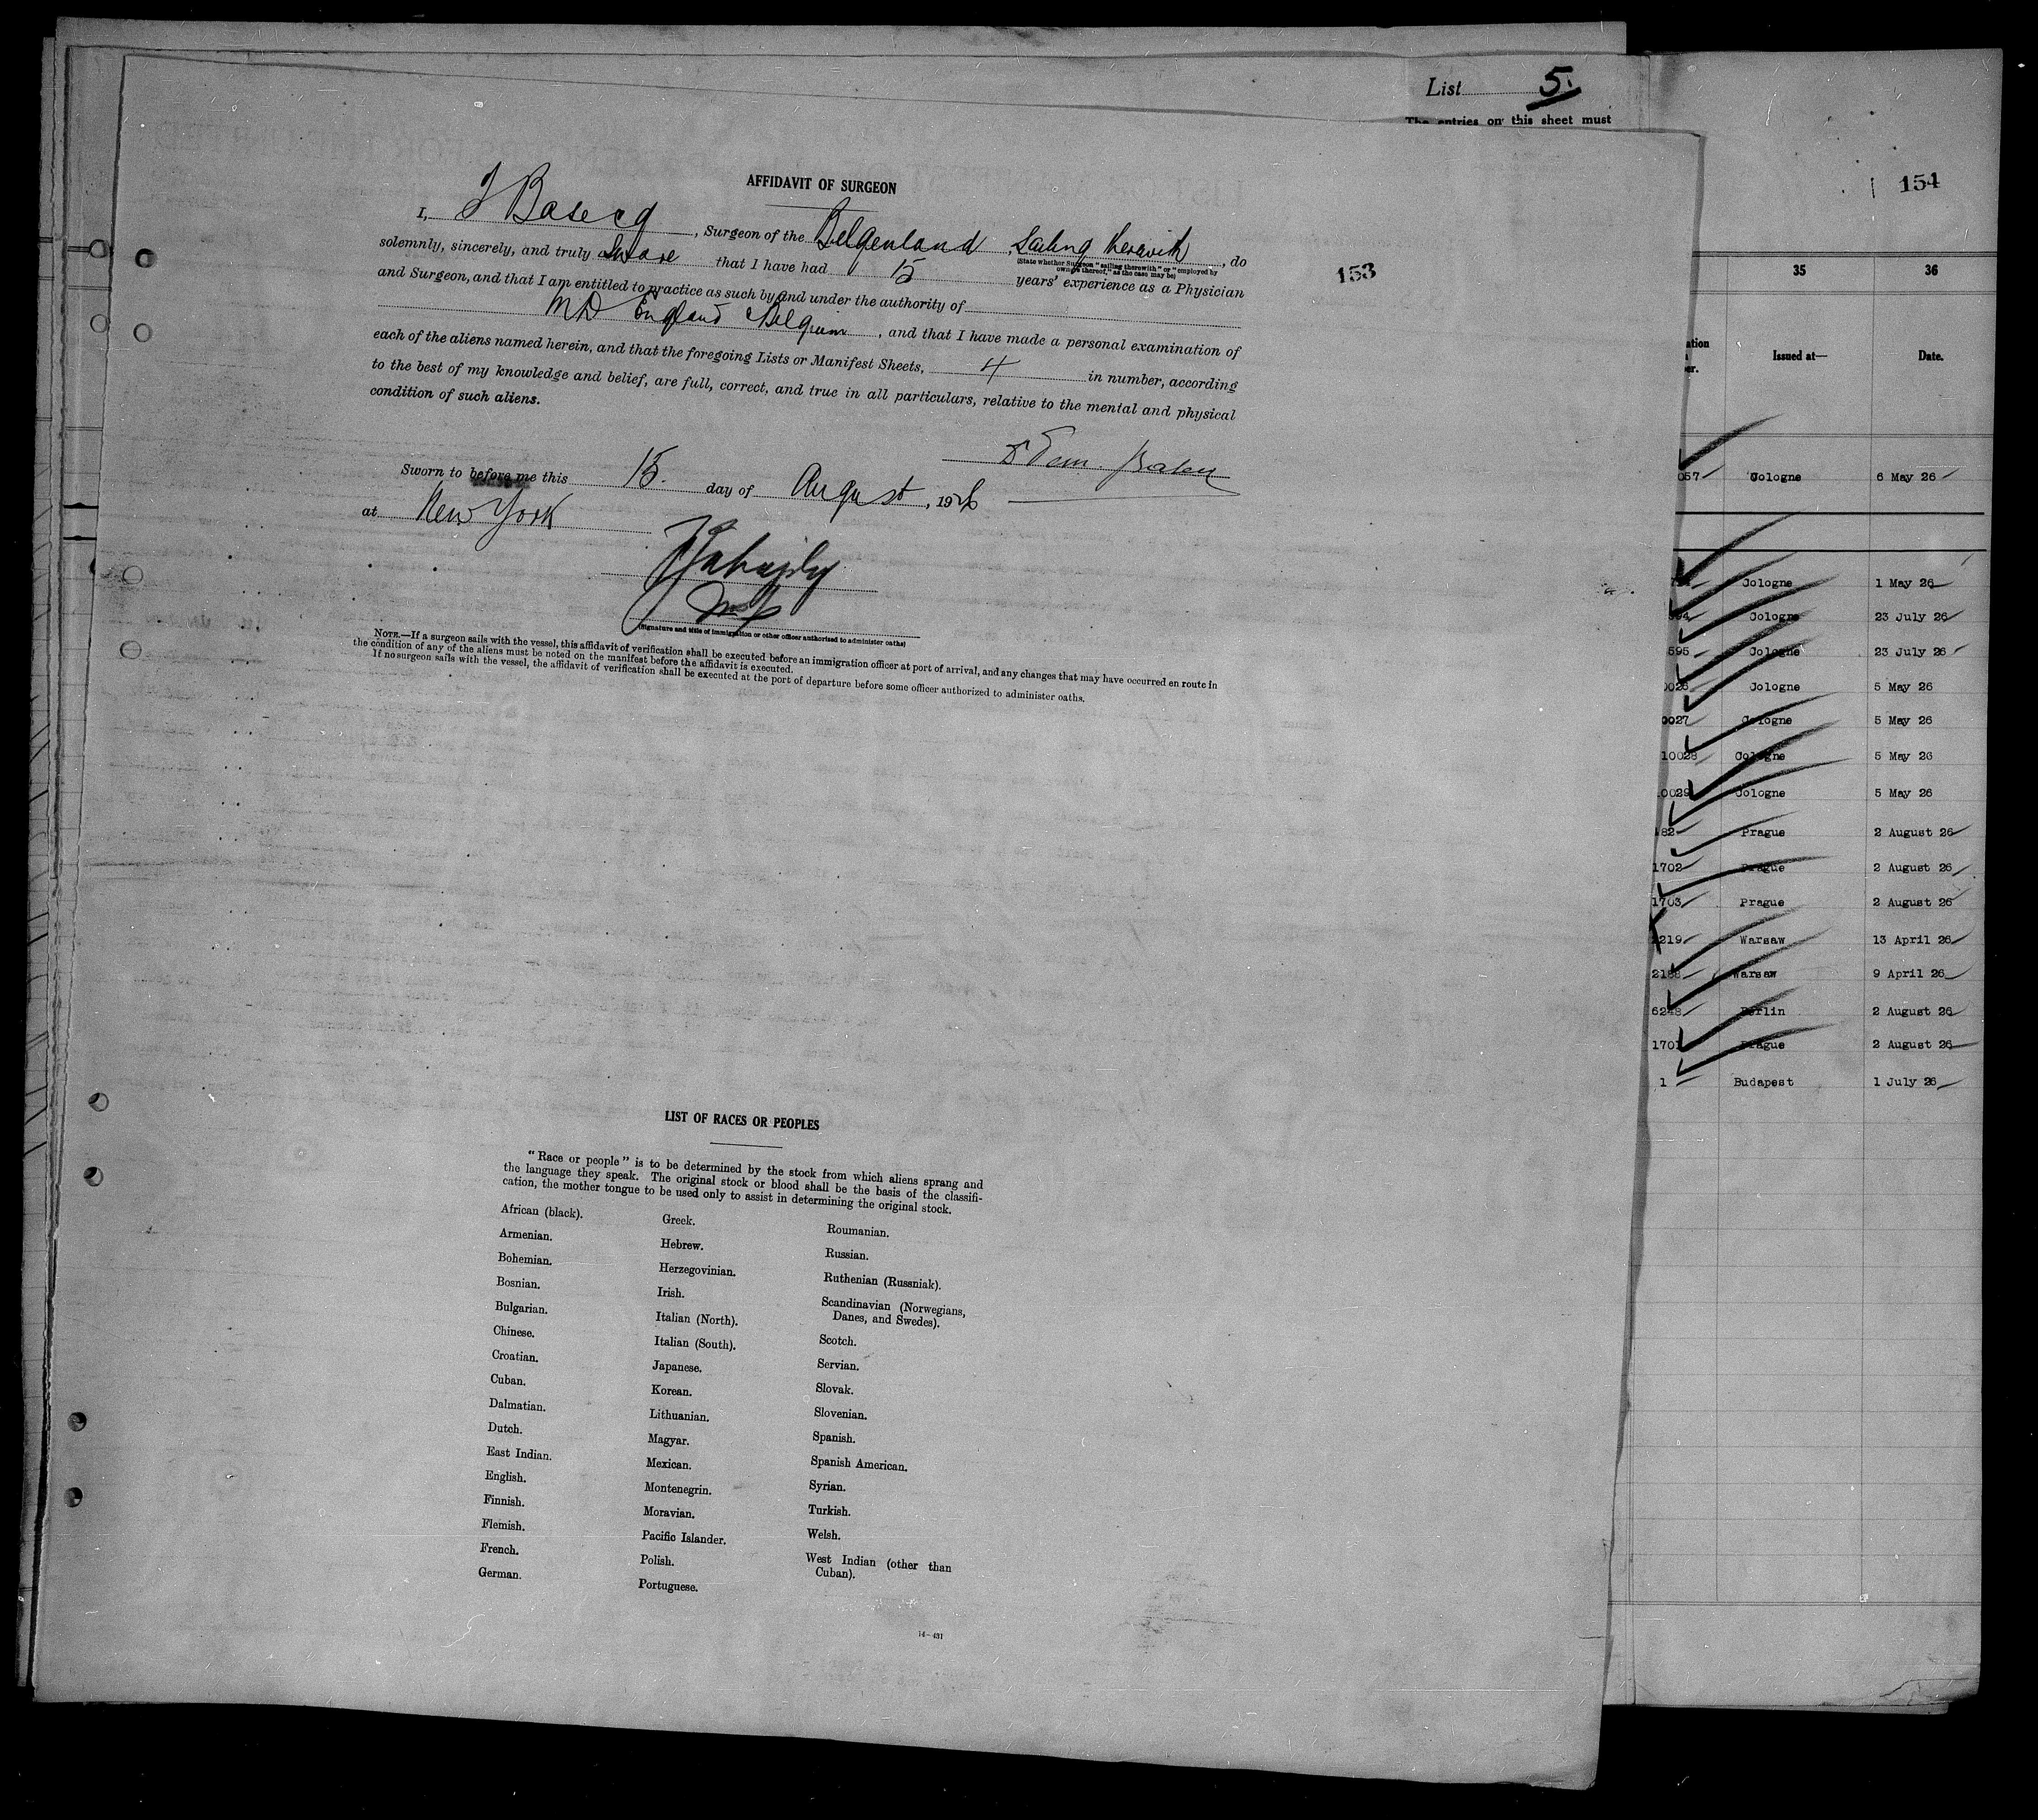 List 5.
The entries on this sheet must
154
153
AFFIDAVIT OF SURGEON
I, , Surgeon of the Belgenland, Sailing therewith, do
(State whether Surgeon "sailing therewith" or "employed by
owners thereof," as the case may be)
solemnly, sincerely, and truly Swore that I have had 15 years' experience as a Physician
and Surgeon, and that I am entitled to practice as such by and under the authority of
MD England & Belgium, and that I have made a personal examination of
each of the aliens named herein, and that the foregoing Lists or Manifest Sheets, 4 in number, according
to the best of my knowledge and belief, are full, correct, and true in all particulars, relative to the mental and physical
condition of such aliens.
Sworn to before me this 15. day of August, 1926
at New York
(Signature and title of immigration or other officer authorized to administer oaths)
NOTE.—If a surgeon sails with the vessel, this affidavit of verification shall be executed before an immigration officer at port of arrival, and any changes that may have occurred en route in
the condition of any of the aliens must be noted on the manifest before the affidavit is executed.
If no surgeon sails with the vessel, the affidavit of verification shall be executed at the port of departure before some officer authorized to administer oaths.
LIST OF RACES OR PEOPLES
"Race or people" is to be determined by the stock from which aliens sprang and
the language they speak. The original stock or blood shall be the basis of the classifi-
cation, the mother tongue to be used only to assist in determining the original stock.
African (black).
Armenian.
Bohemian.
Bosnian.
Bulgarian.
Chinese.
Croatian.
Cuban.
Dalmatian.
Dutch.
East Indian.
English.
Finnish.
Flemish.
French.
German.
Greek.
Hebrew.
Herzegovinian.
Irish.
Italian (North).
Italian (South).
Japanese.
Korean.
Lithuanian.
Magyar.
Mexican.
Montenegrin.
Moravian.
Pacific Islander.
Polish.
Portuguese.
Roumanian.
Russian.
Ruthenian (Russniak).
Scandinavian (Norwegians,
Danes, and Swedes).
Scotch.
Servian.
Slovak.
Slovenian.
Spanish.
Spanish American.
Syrian.
Turkish.
Welsh.
West Indian (other than
Cuban).
14—431
35 36
Issued at— Date.
057 Cologne 6 May 26
Cologne 1 May 26
594 Cologne 23 July 26
595 Cologne 23 July 26
0026 Cologne 5 May 26
0027 Cologne 5 May 26
10028 Cologne 5 May 26
0029 Cologne 5 May 26
182 Prague 2 August 26
1702 Prague 2 August 26
1703 Prague 2 August 26
2219 Warsaw 13 April 26
2188 Warsaw 9 April 26
6248 Berlin 2 August 26
1701 Prague 2 August 26
1 Budapest 1 July 26